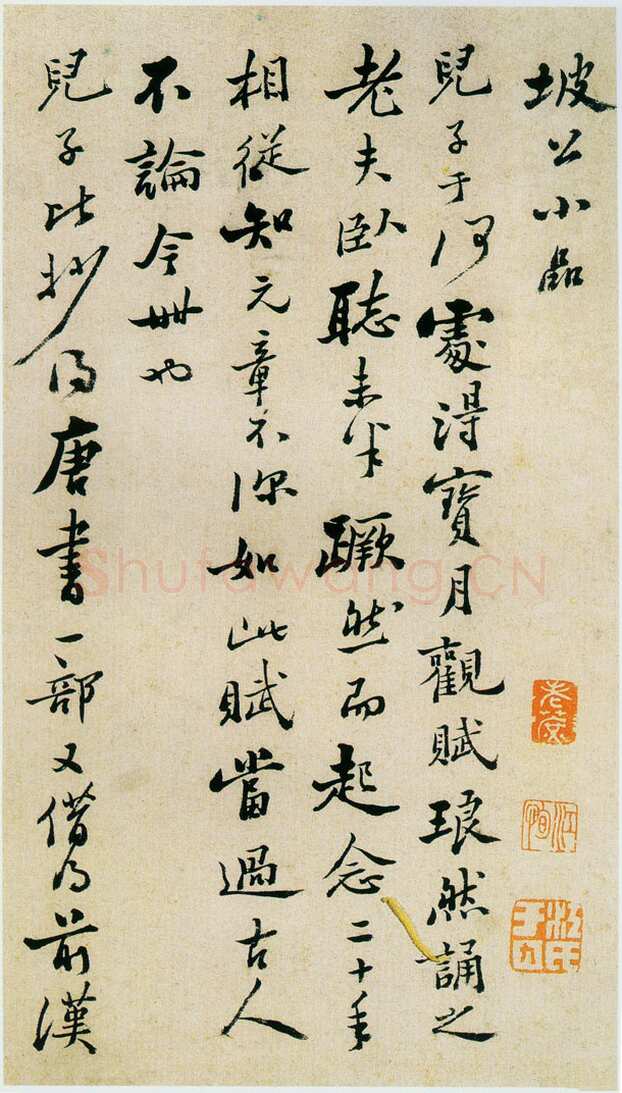 坡公小品
兒子于何處得寶月觀賦琅然誦之
老夫臥聽未半蹶然而起念二十年
相從知元章不深如此賦當過古人
不論今卋也
兒子比抄得唐書一部又借得前漢
Shufawang.CN